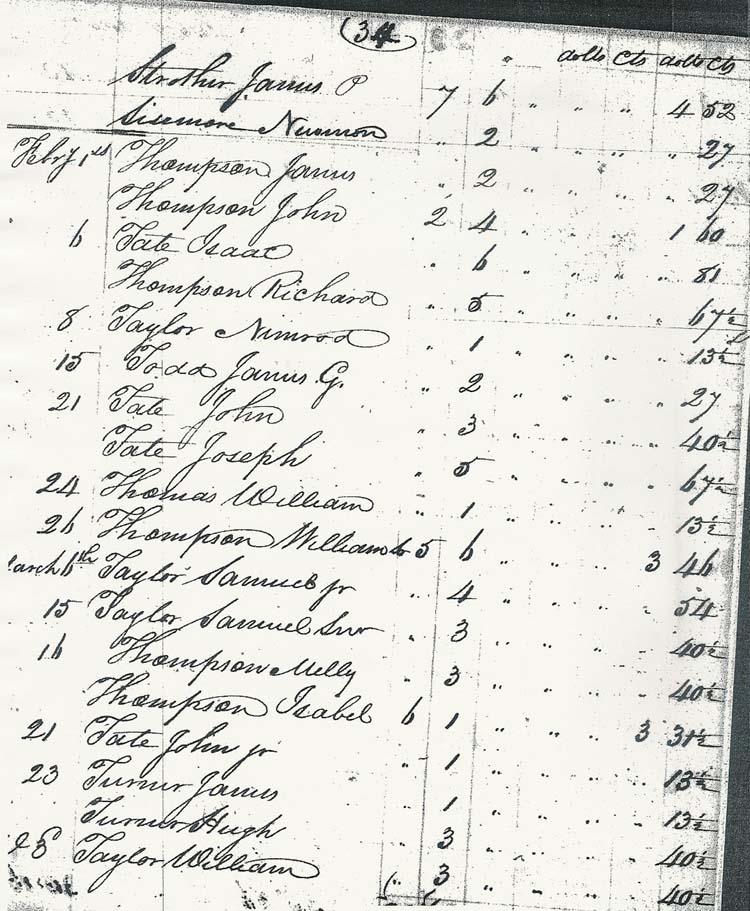 34
dolls cts dolls cts
Strother James P 7 6 " " " 4 52
Sisemore Newmon " 2 " " " " 27
Febry 1st Thompson James " 2 " " " " 27
Thompson John 2 4 " " " 1 60
6 Tate Isaac " 6 " " " " 81
Thompson Richard " 5 " " " " 67½
8 Taylor Nimrod " 1 " " " " 13½
15 Todd James G. " 2 " " " " 27
21 Tate John " 3 " " " " 40½
Tate Joseph " 5 " " " " 67½
24 Thomas William " 1 " " " " 13½
26 Thompson William 5 6 " " " 3 46
arch 6th Taylor Samuel jr " 4 " " " " 54
15 Taylor Samuel Snr " 3 " " " " 40½
16 Thompson Melly " 3 " " " " 40½
Thompson Isabel 6 1 " " " 3 31½
21 Tate John jr " 1 " " " " 13½
23 Turner James " 1 " " " " 13½
Turner Hugh " 3 " " " " 40½
28 Taylor William " 3 " " " " 40½